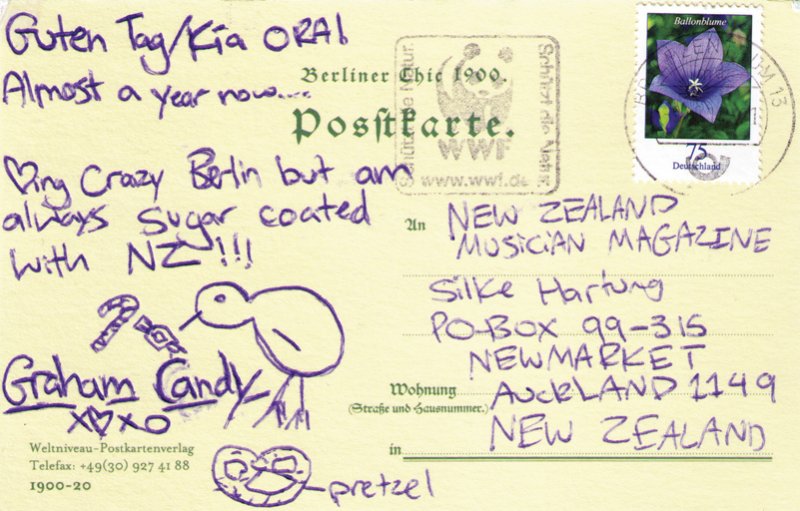 Guten Tag/Kia ORA!
Almost a year now....
♡ing Crazy Berlin but am
always sugar coated
with NZ!!!
Graham Candy
x♡xo
pretzel
Weltniveau-Postkartenverlag
Telefax: +49(30) 927 41 88
1900-20
Berliner Chic 1900.
Postkarte.
Schützt die Natur.
WWF
www.wwf.de
Ballonblume
75
Deutschland
13
An NEW ZEALAND
MUSICIAN MAGAZINE
Silke Hartung
PO-BOX 99-315
NEWMARKET
Wohnung AUCKLAND 1149
(Straße und Hausnummer.)
NEW ZEALAND
in